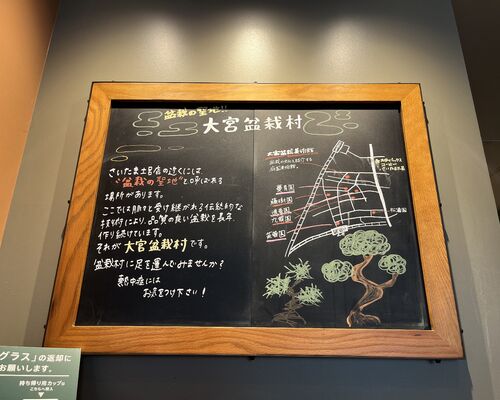 盆栽の聖地!!
大宮盆栽村
さいたま土呂店の近くには
"盆栽の聖地"と呼ばれる
場所があります。
ここでは脈々と受け継がれる伝統的な
技術により、品質の良い盆栽を長年
作り続けています。
それが 大宮盆栽村です。
盆栽村に足を運んでみませんか?
熱中症には
お気をつけ下さい!
大宮盆栽美術館
盆栽の文化を紹介する
夢月園
清香園
九霞園
芙蓉園
グラス」の返却に
お願いします。
持ち帰り用カップは
こちらへ